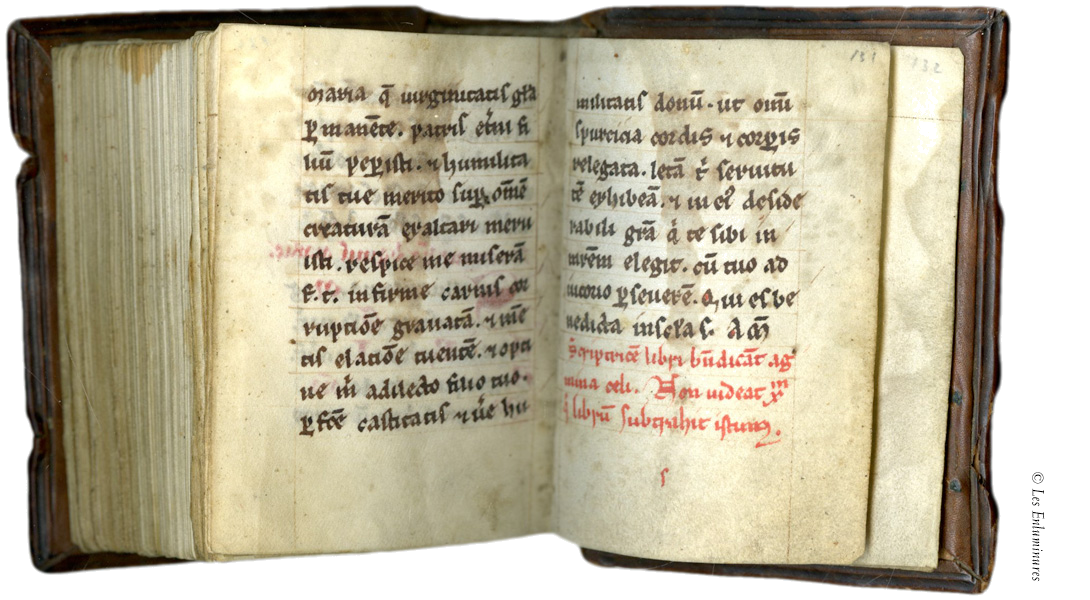 oraria q̄ uirginitatis gr̄a
ꝑmanēte. patris et̄ni fi
liū peꝑisti. ⁊ humilita
tis tue merito suꝑ om̄ē
creaturā exaltari meru
isti. respice me miserā
f. t. infirme carnis cor
ruptiōe grauatā. ⁊ mē
tis elatiōe tuentē. ⁊ opti
ne m̄ a dilecto filio tuo.
ꝑfc̄ē castitatis ⁊ ūe hu
militatis donū. ut om̄ū
spurcicia cordis ⁊ corꝑis
relegata. letā t̄ seruitu
tē exhibeā. ⁊ in eiꝰ deside
rabili gr̄a q̄ te sibi in
mr̄em elegit. cū tuo ad
iutorio ꝑseuerē. Qui es be
nedicta in sc̄la s̄. Am̄
Scriptricē libri bn̄dicāt ag
mina celi. Non uideat xp̄m
q̄ librū subtrahit istum.
131
132
© Les Enluminures